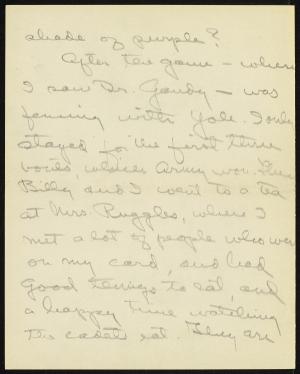 shade of purple?
After the game - where
I saw Dr. Gandy - was
fencing with Yale. I only
stayed for the first three
bouts, which Army won. Then
Billy and I went to a tea
at Mrs. Ruggles, where I
met a lot of people who were
on my card, and had
good things to eat, and
a happy time watching
the cadets eat. They are